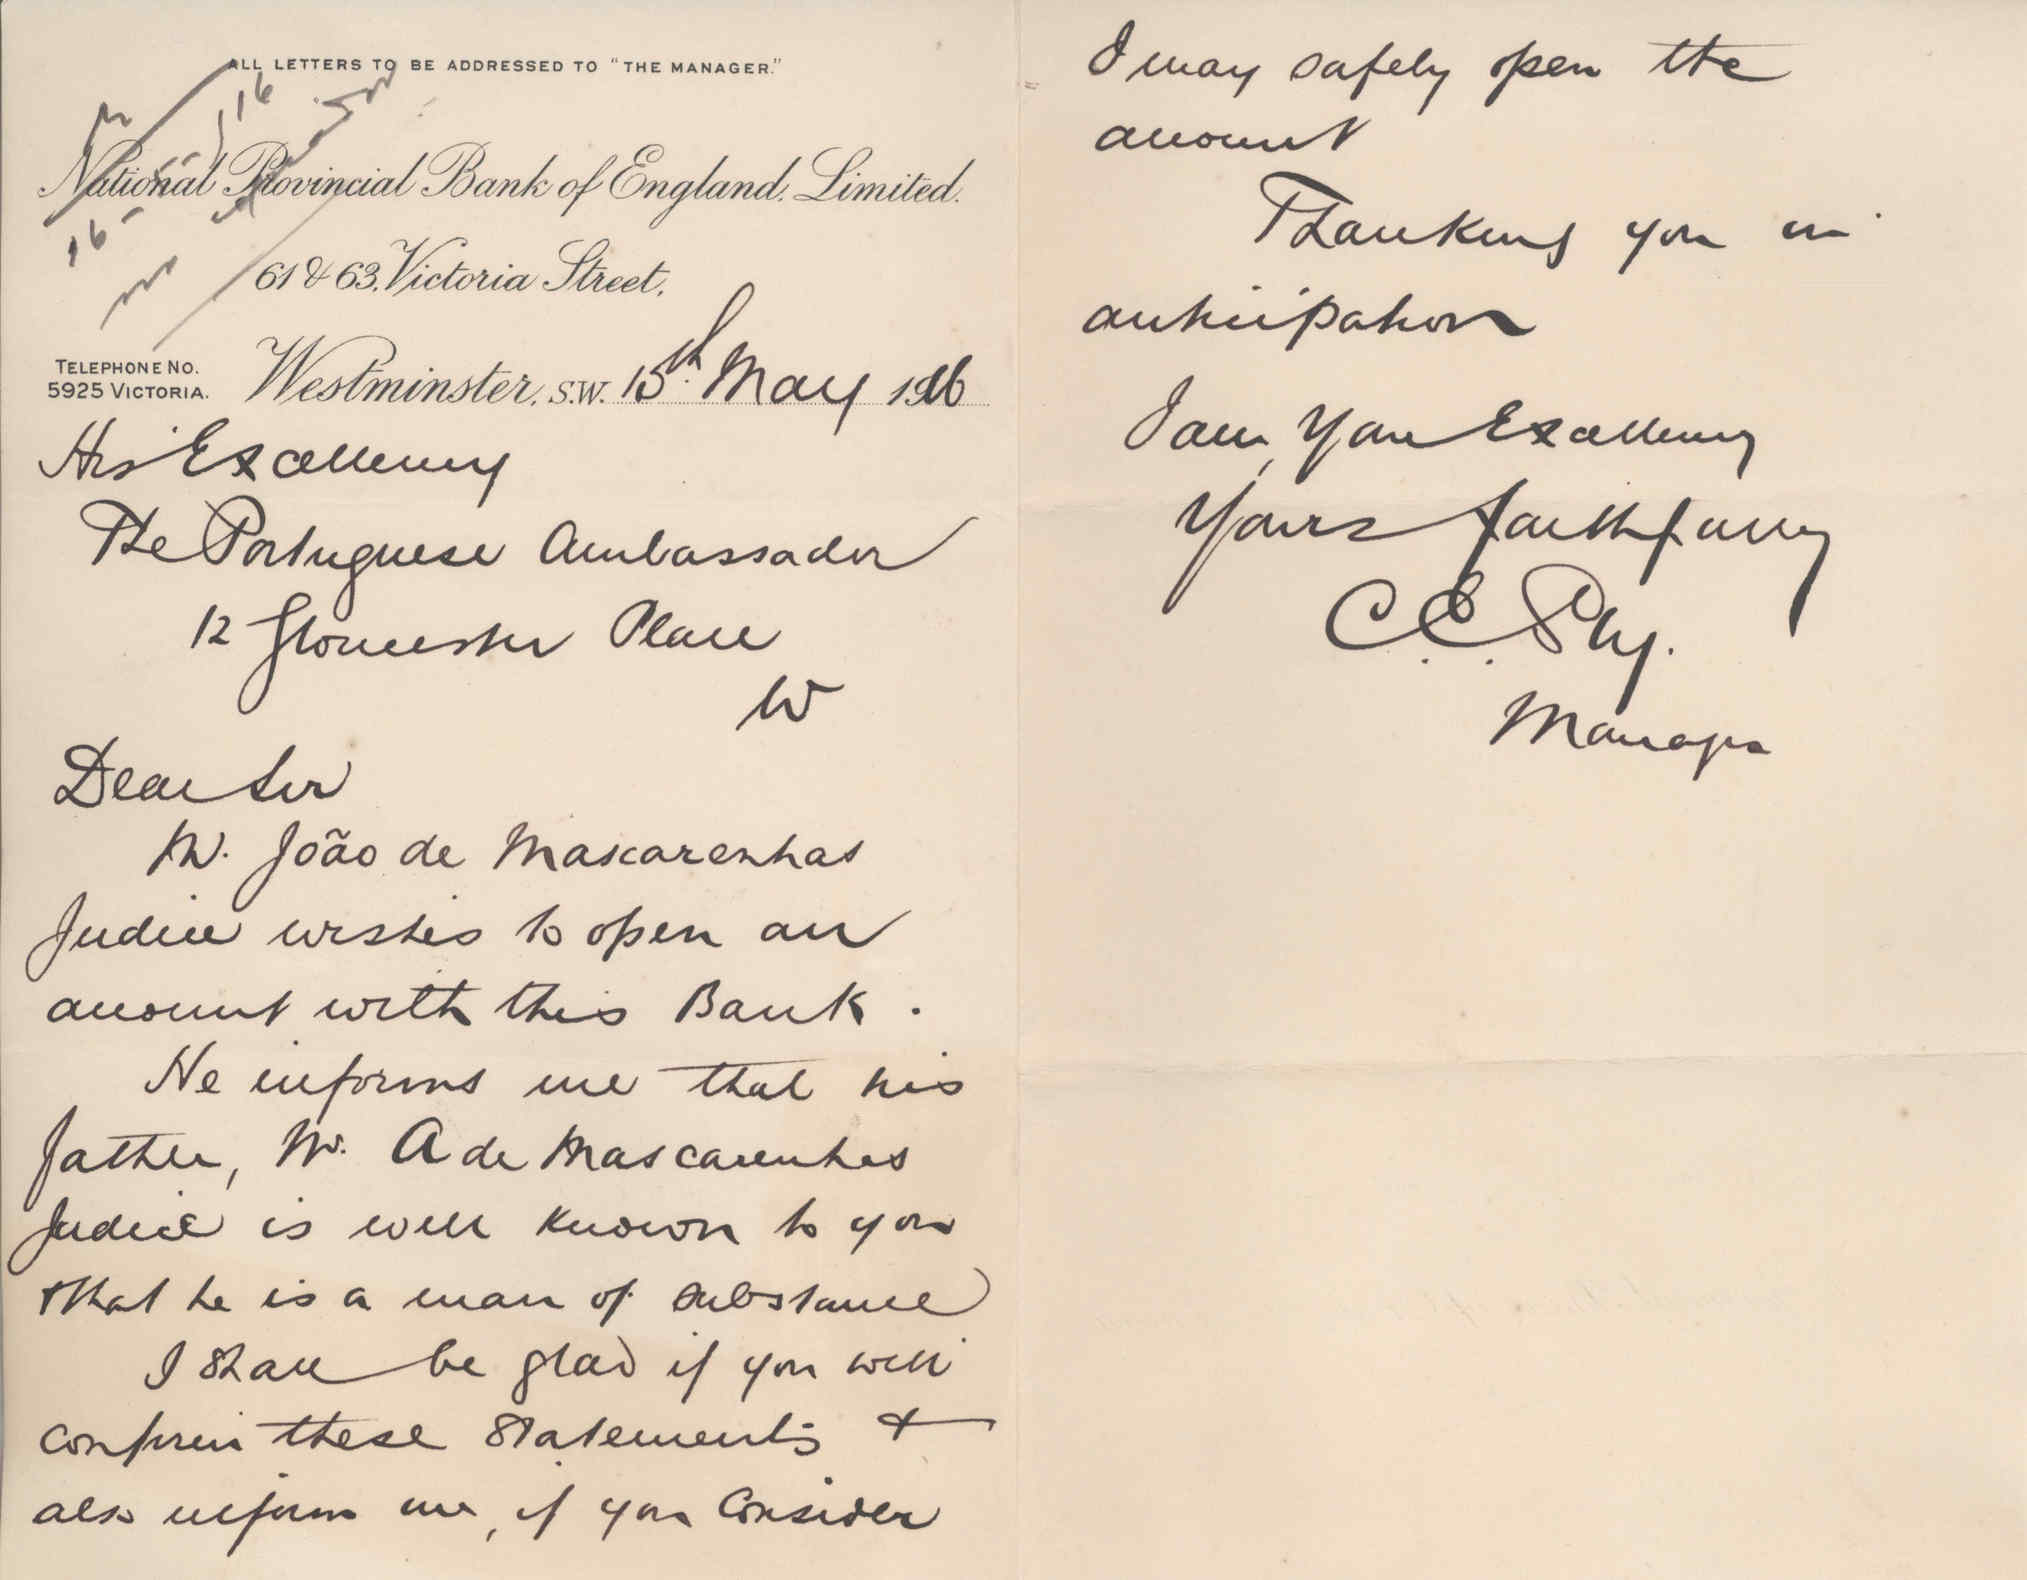 ALL LETTERS TO BE ADDRESSED TO "THE MANAGER."
National Provincial Bank of England, Limited.
61 & 63, Victoria Street,
TELEPHONE NO.
5925 VICTORIA.
Westminster, S.W. 15th May 1916
16
16
His Excellency
The Portuguese Ambassador
12 Gloucester Place
W
Dear Sir
M. João de Mascarenhas
Judice wishes to open an
account with this Bank.
He informs me that his
father, M. A de Mascarenhas
Judice is well known to you
that he is a man of substance
I shall be glad if you will
confirm these statements &
also inform me, if you consider
I may safely open the
account
Thanking you in
anticipation
I am, Your Excellency
Yours faithfully
C. C.
Manager